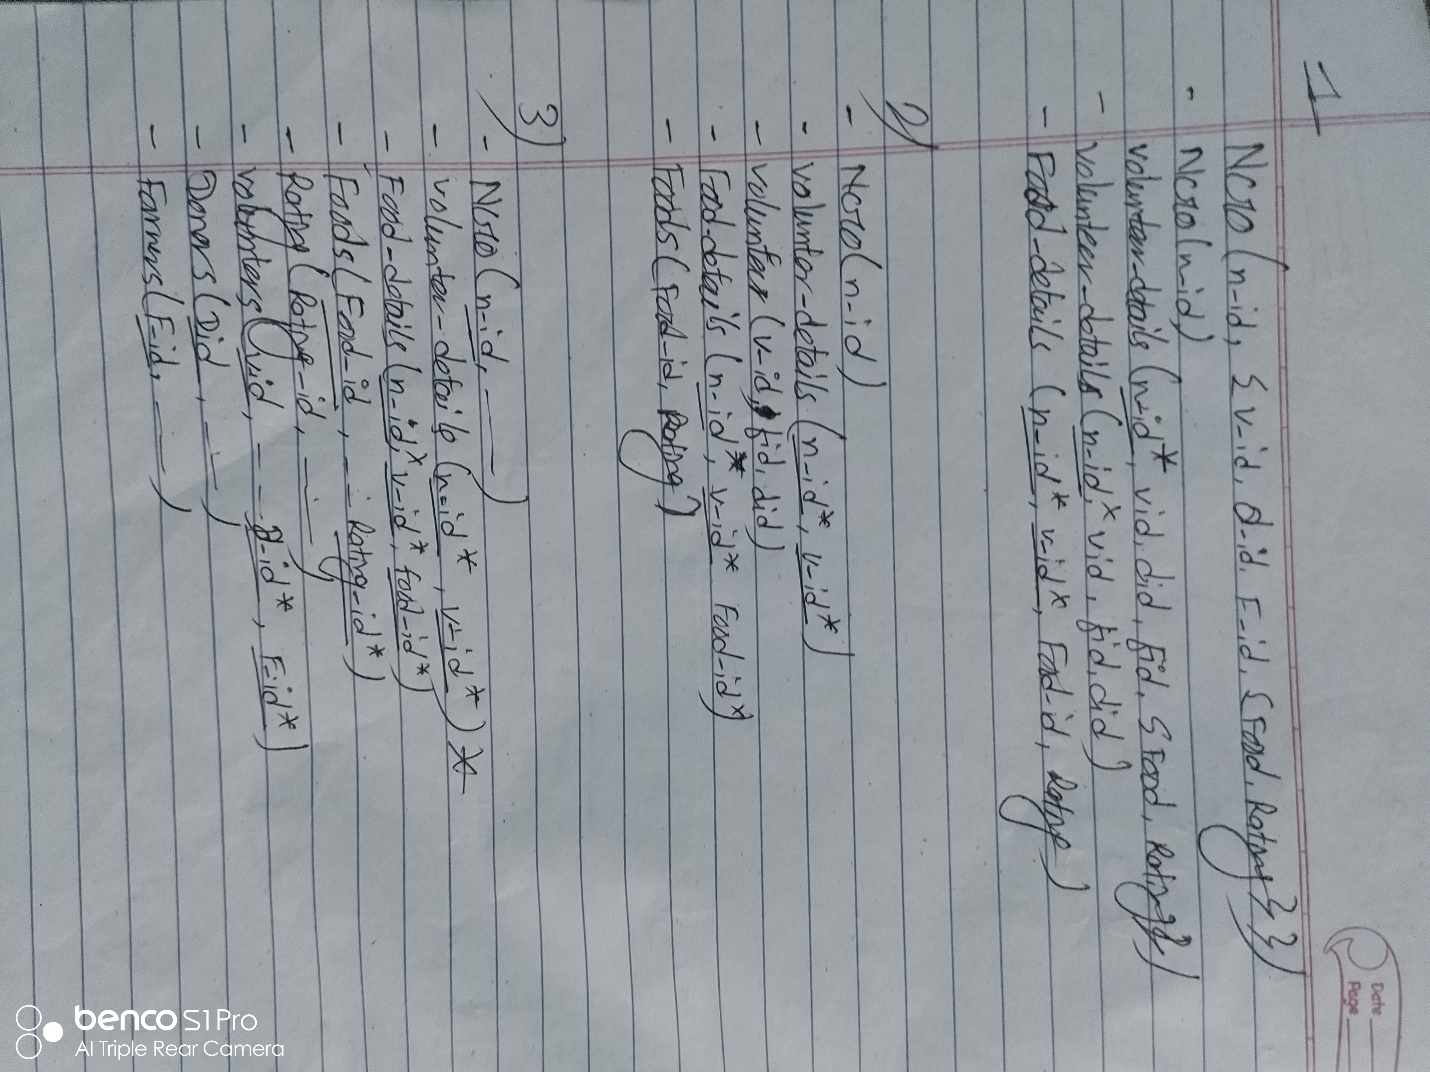 Date
Page
1
NGO (n-id, {v-id, d-id, F-id, {Food, Rating}})
- NGO (n-id)
volunteer-details (n-id*, vid, did, fid, {Food, Rating})
- volunteer-details (n-id,* vid, fid, did)
- Food-details (n-id*, v-id*, Food-id, Rating)
2)
- NGO (n-id)
- volunter-details (n-id*, v-id*)
- volunteer (v-id, fid, did)
- Food-details (n-id*, v-id* Food-id*)
- Foods (Food-id, Rating)
3)
- NGO (n-id, ——)
- volunter-details (n-id*, v-id*)
- Food-details (n-id,* v-id*, food-id*)
- Foods (Food-id, — Rating-id*)
- Rating (Rating-id, ——)
- volunters (vid, — D-id*, F-id*)
- Donors (Did, ——)
- Farmers (F-id, ——)
benco S1 Pro
AI Triple Rear Camera